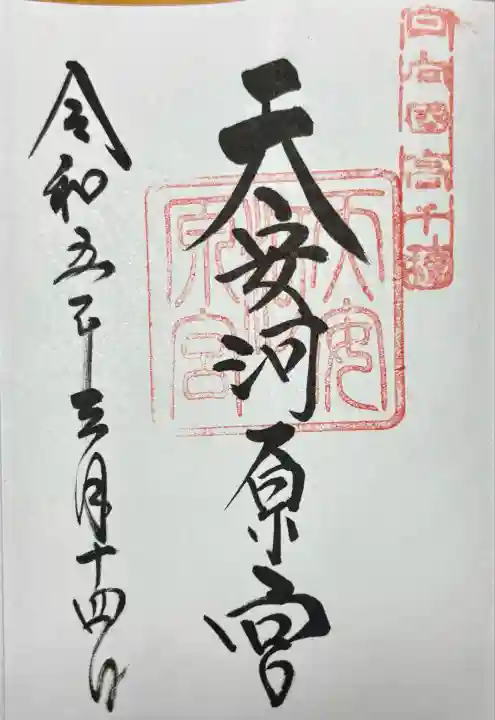 日向國高千穂
天安河原宮
天安
河
原宮
令和五年三月十四日